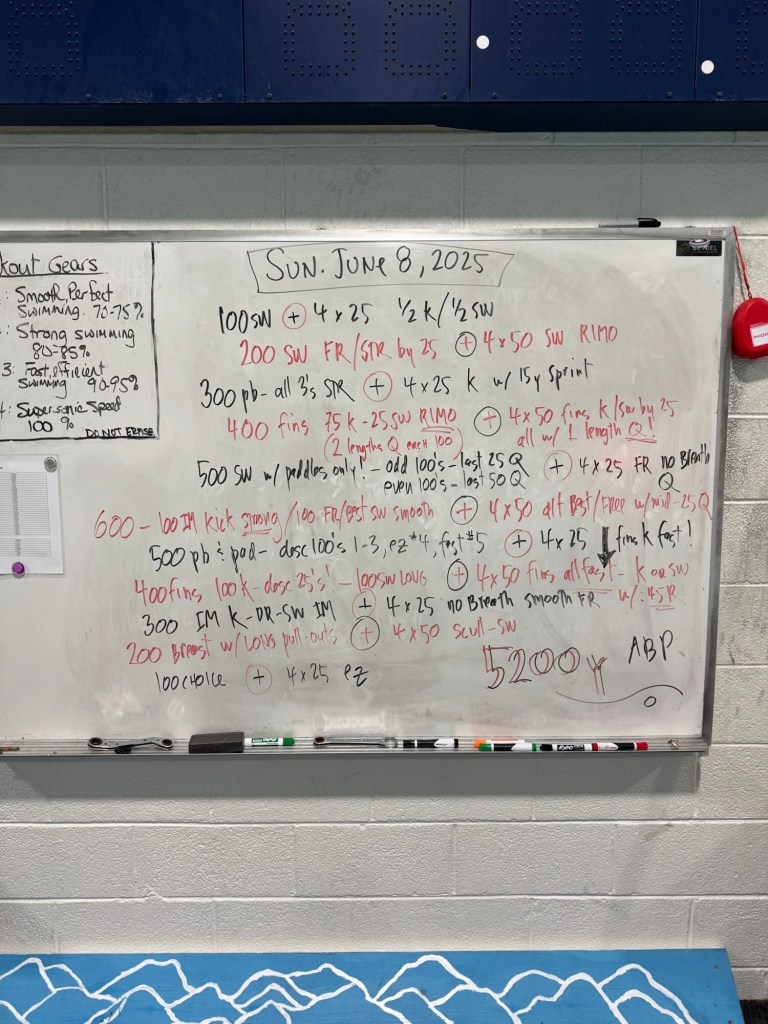 kout Gears
: Smooth, Perfect
Swimming. 70-75%
: Strong swimming
80-85%
3: Fast, efficient
swimming 90-95%
: Supersonic Speed
100 %
DO NOT ERASE
SUN. JUNE 8, 2025
100 SW + 4 x 25 1/2 K / 1/2 SW
200 SW FR/STR by 25 + 4 x 50 SW RIMO
300 pb - all 3's STR + 4 x 25 K w/ 15y Sprint
400 fins 75 K - 25 SW RIMO + 4 x 50 fins K/SW by 25
(2 lengths Q each 100) all w/ 1 length Q!
500 SW w/ paddles only! - odd 100's - last 25 Q + 4 x 25 FR no Breath
even 100's - last 50 Q Q
600 - 100 IM Kick strong / 100 FR/Best SW smooth + 4 x 50 alt Best/Free w/ mid-25 Q
500 pb & pad - desc 100's 1-3, ez #4, fast #5 + 4 x 25 ↓ fins K fast!
400 fins 100 K - desc 25's! - 100 SW LONG + 4 x 50 fins all fast - K or SW
300 IM K-DR-SW IM + 4 x 25 no Breath smooth FR w/ :45 R
200 Breast w/ LONG pull-outs + 4 x 50 scull-SW
100 CHOICE + 4 x 25 ez
5200y
ABP